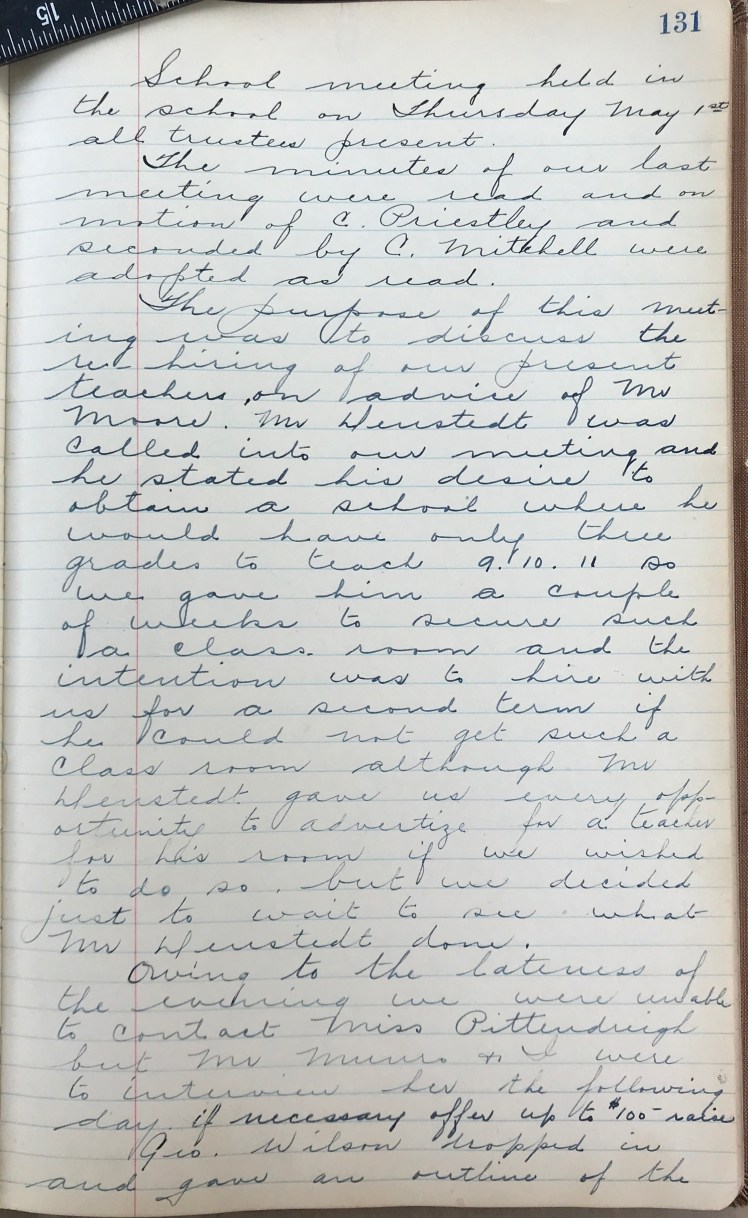 15
131
School meeting held in
the school on Thursday May 1st
all trustees present.
The minutes of our last
meeting were read and on
motion of C. Priestley and
seconded by C. Mitchell were
adopted as read.
The purpose of this meet-
ing was to discuss the
re-hiring of our present
teachers, on advice of Mr
Moore. Mr Henstedt was
called into our meeting and
he stated his desire to
obtain a school where he
would have only three
grades to teach 9. 10. 11 so
we gave him a couple
of weeks to secure such
a class room and the
intention was to hire with
us for a second term if
he could not get such a
class room although Mr
Henstedt gave us every opp-
ortunity to advertize for a teacher
for his room if we wished
to do so. but we decided
just to wait to see what
Mr Henstedt done.
Owing to the lateness of
the evening we were unable
to contact Miss Pittendreigh
but Mr Munro & I were
to interview her the following
day. if necessary offer up to $100- raise
Geo. Wilson dropped in
and gave an outline of the